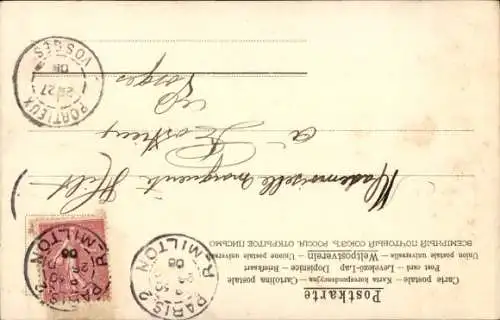 Postkarte
Carte postale • Karta korespondencyjna • Cartolina postale
Post card • Levelező-Lap • Dopisnice • Briefkaart
Union universelle • Weltpostverein • Unione postale universale
ВСЕМІРНЫЙ ПОЧТОВЫЙ СОЮЗЪ. РОССІЯ. ОТКРЫТОЕ ПИСЬМО
Mademoiselle Marguerite
à Portieux
Vosges
PARIS 2
R. MILTON
08
PARIS 2
R. MILTON
08
PORTIEUX
27
08
VOSGES